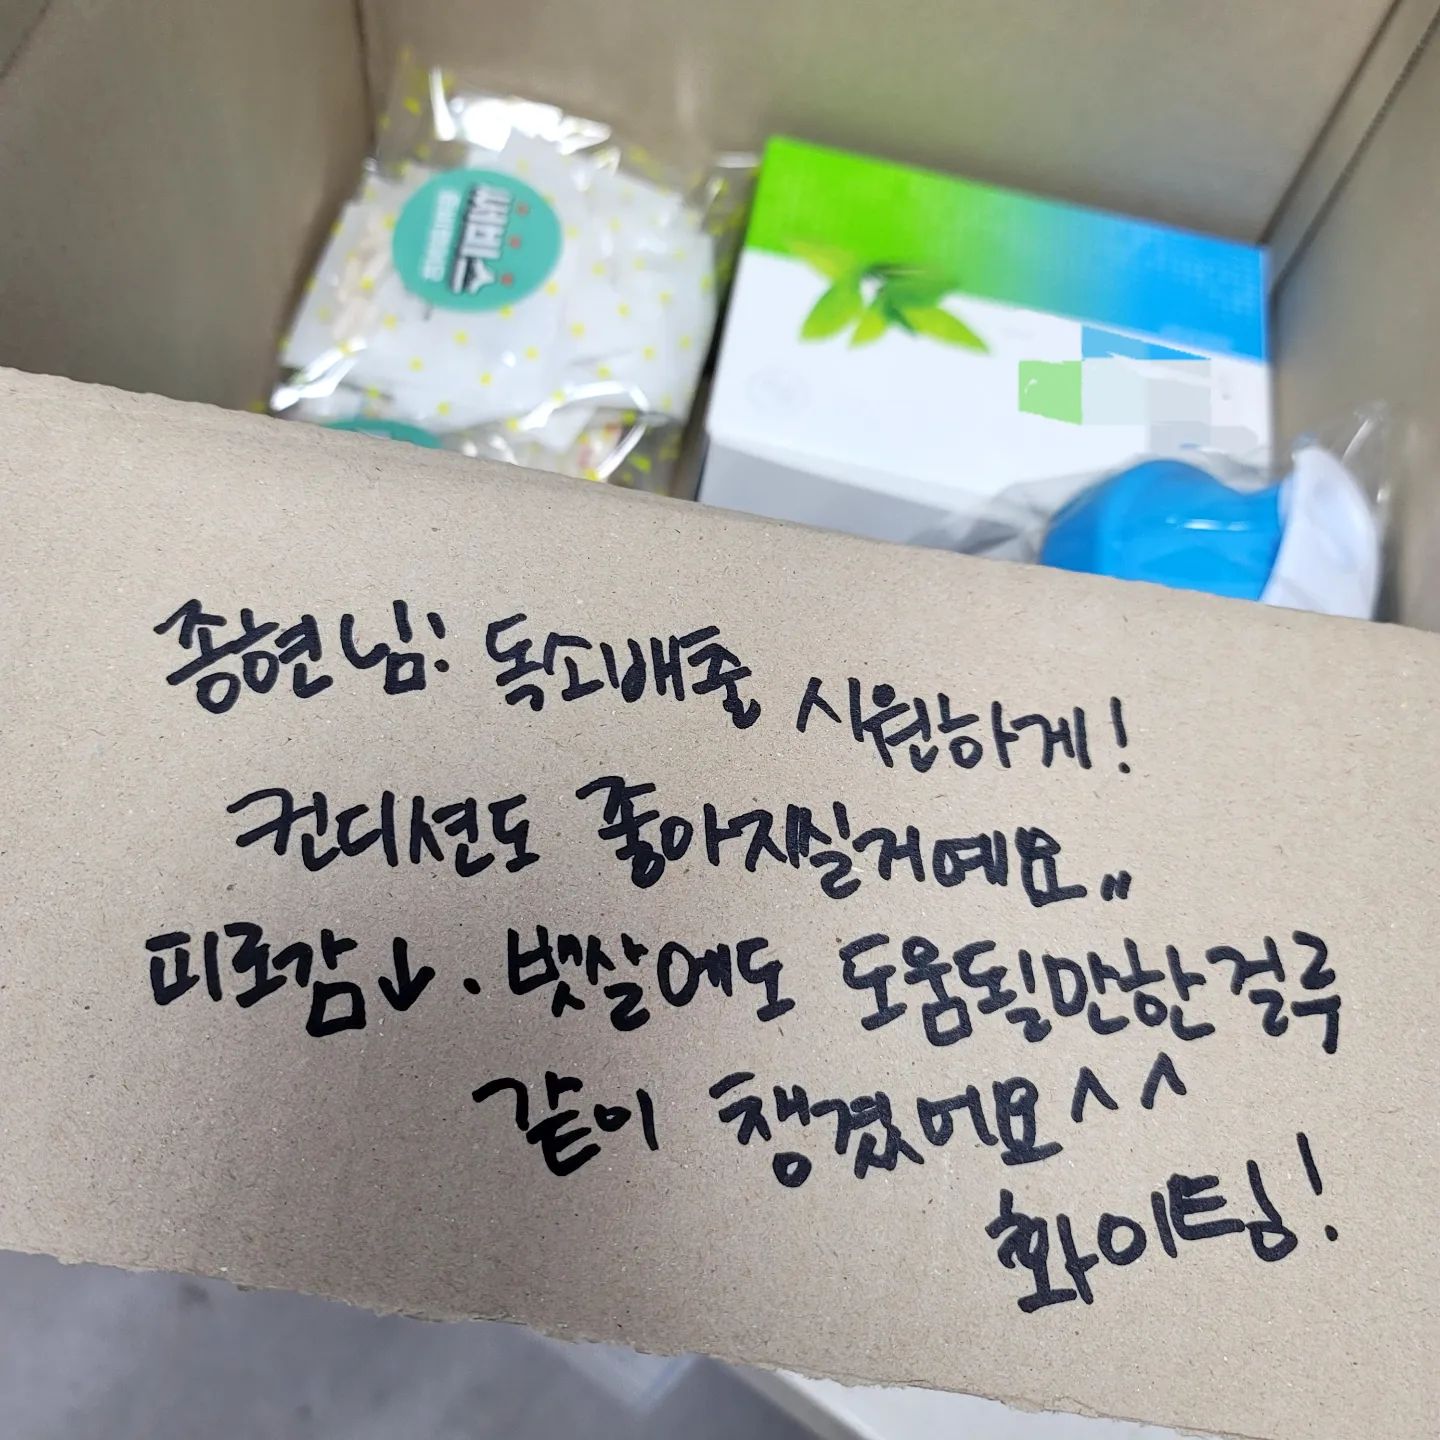 써비스
종현님! 독소배출 시원하게!
컨디션도 좋아지실거예요,,
피로감↓. 뱃살에도 도움될만한걸루
같이 챙겼어요^^
화이팅!